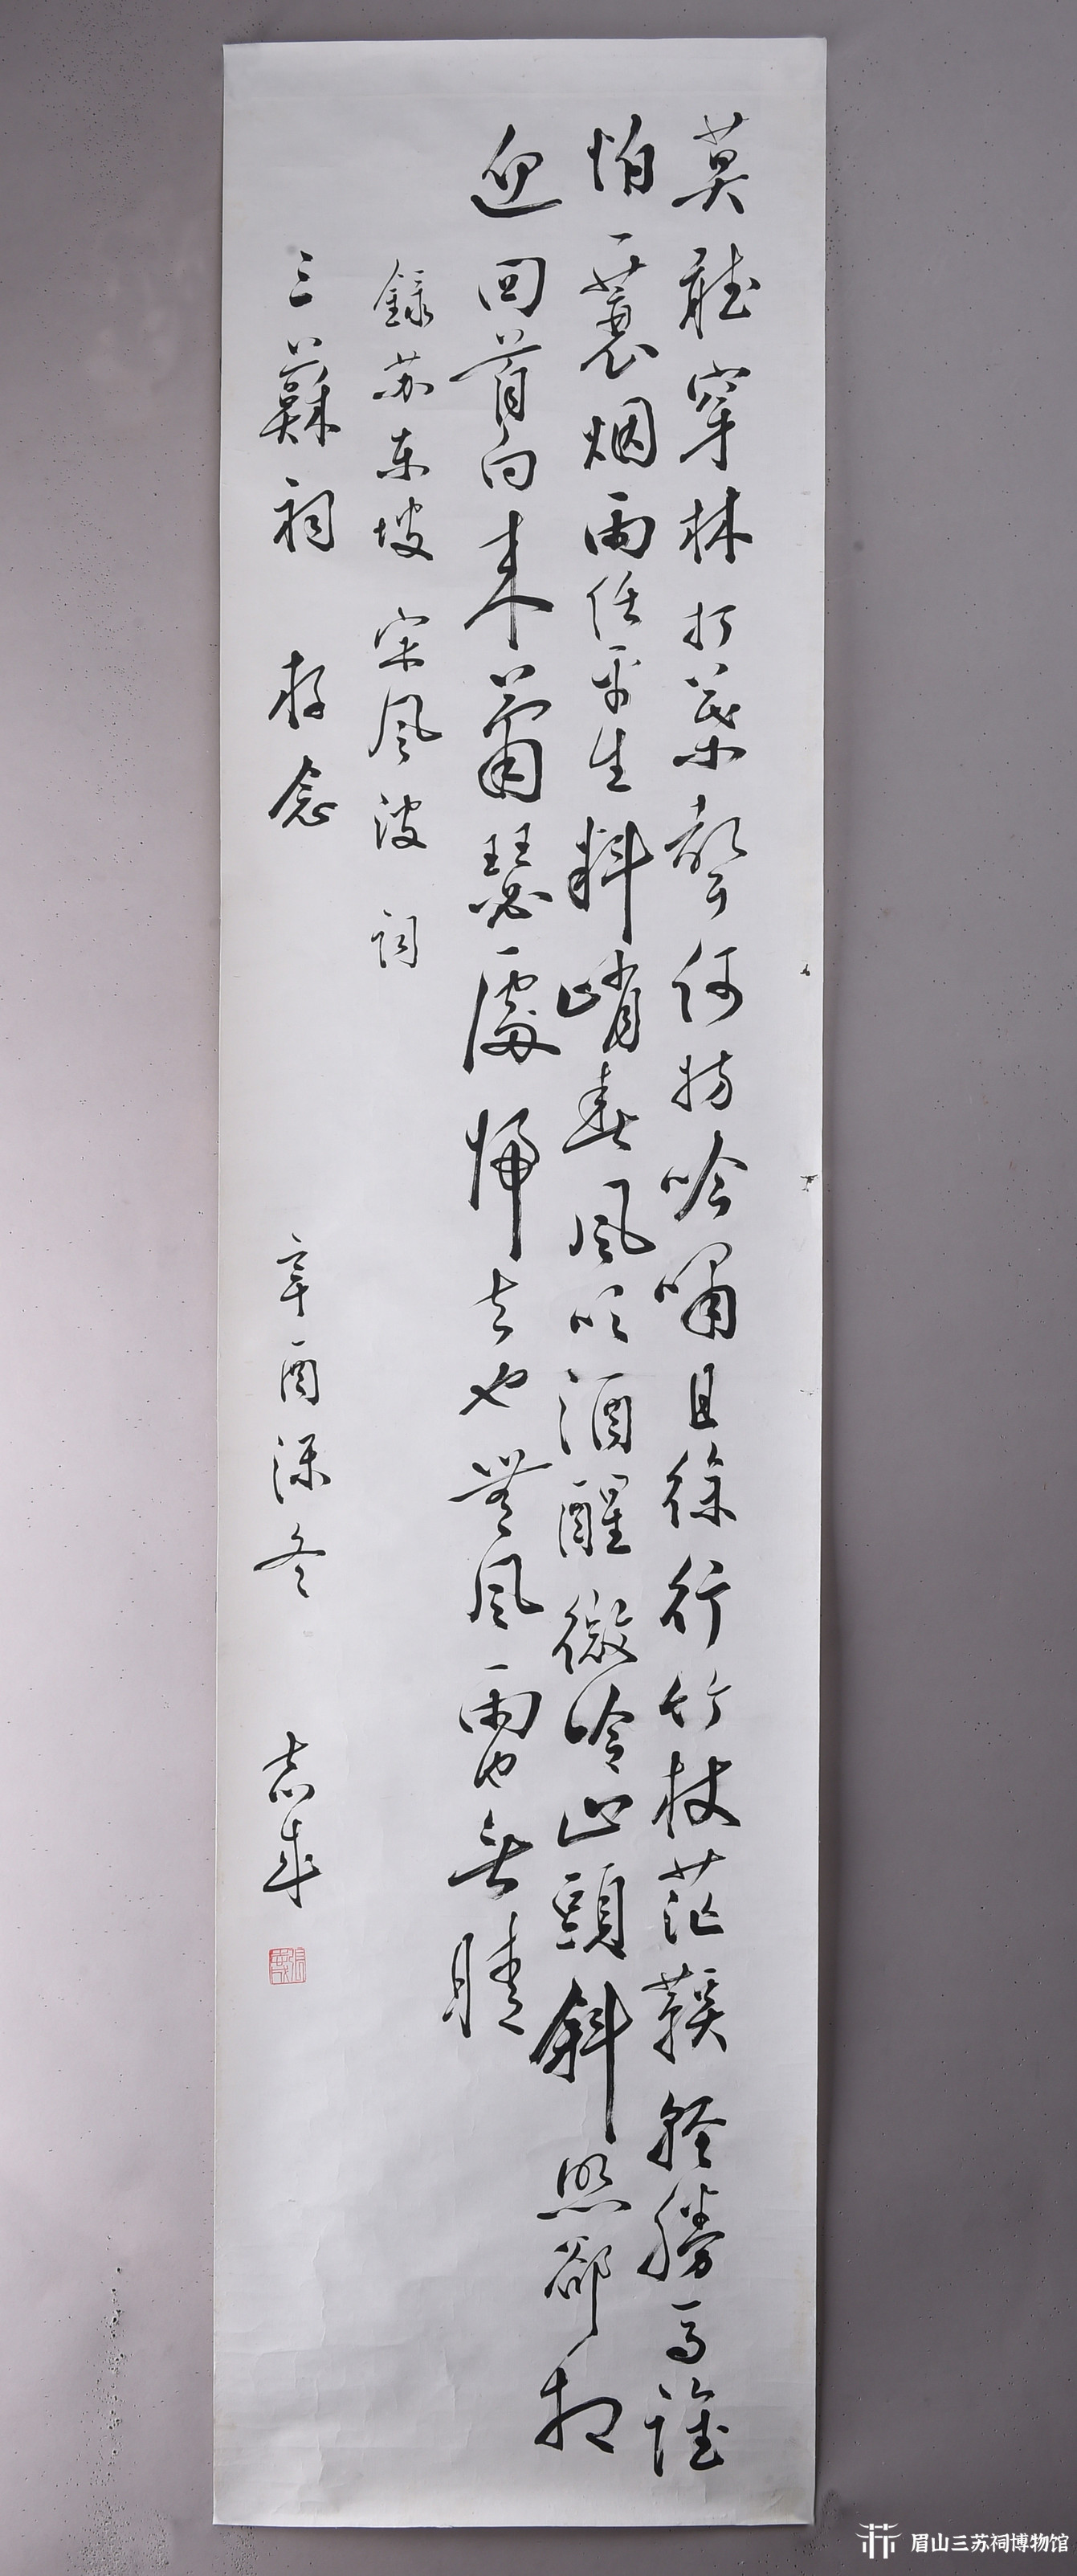 莫聽穿林打葉聲何妨吟嘯且徐行竹杖芒鞵輕勝馬誰
怕一蓑烟雨任平生料峭春風吹酒醒微冷山頭斜照卻相
迎回首向来蕭瑟處歸去也無風雨也無晴
錄苏东坡 定風波 詞
三蘇祠 存念
辛酉深冬 志
眉山三苏祠博物馆